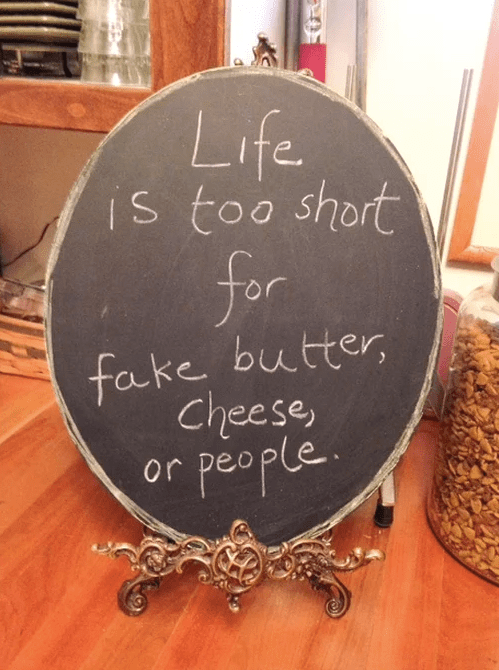 Life
is too short
for
fake butter,
Cheese,
or people.